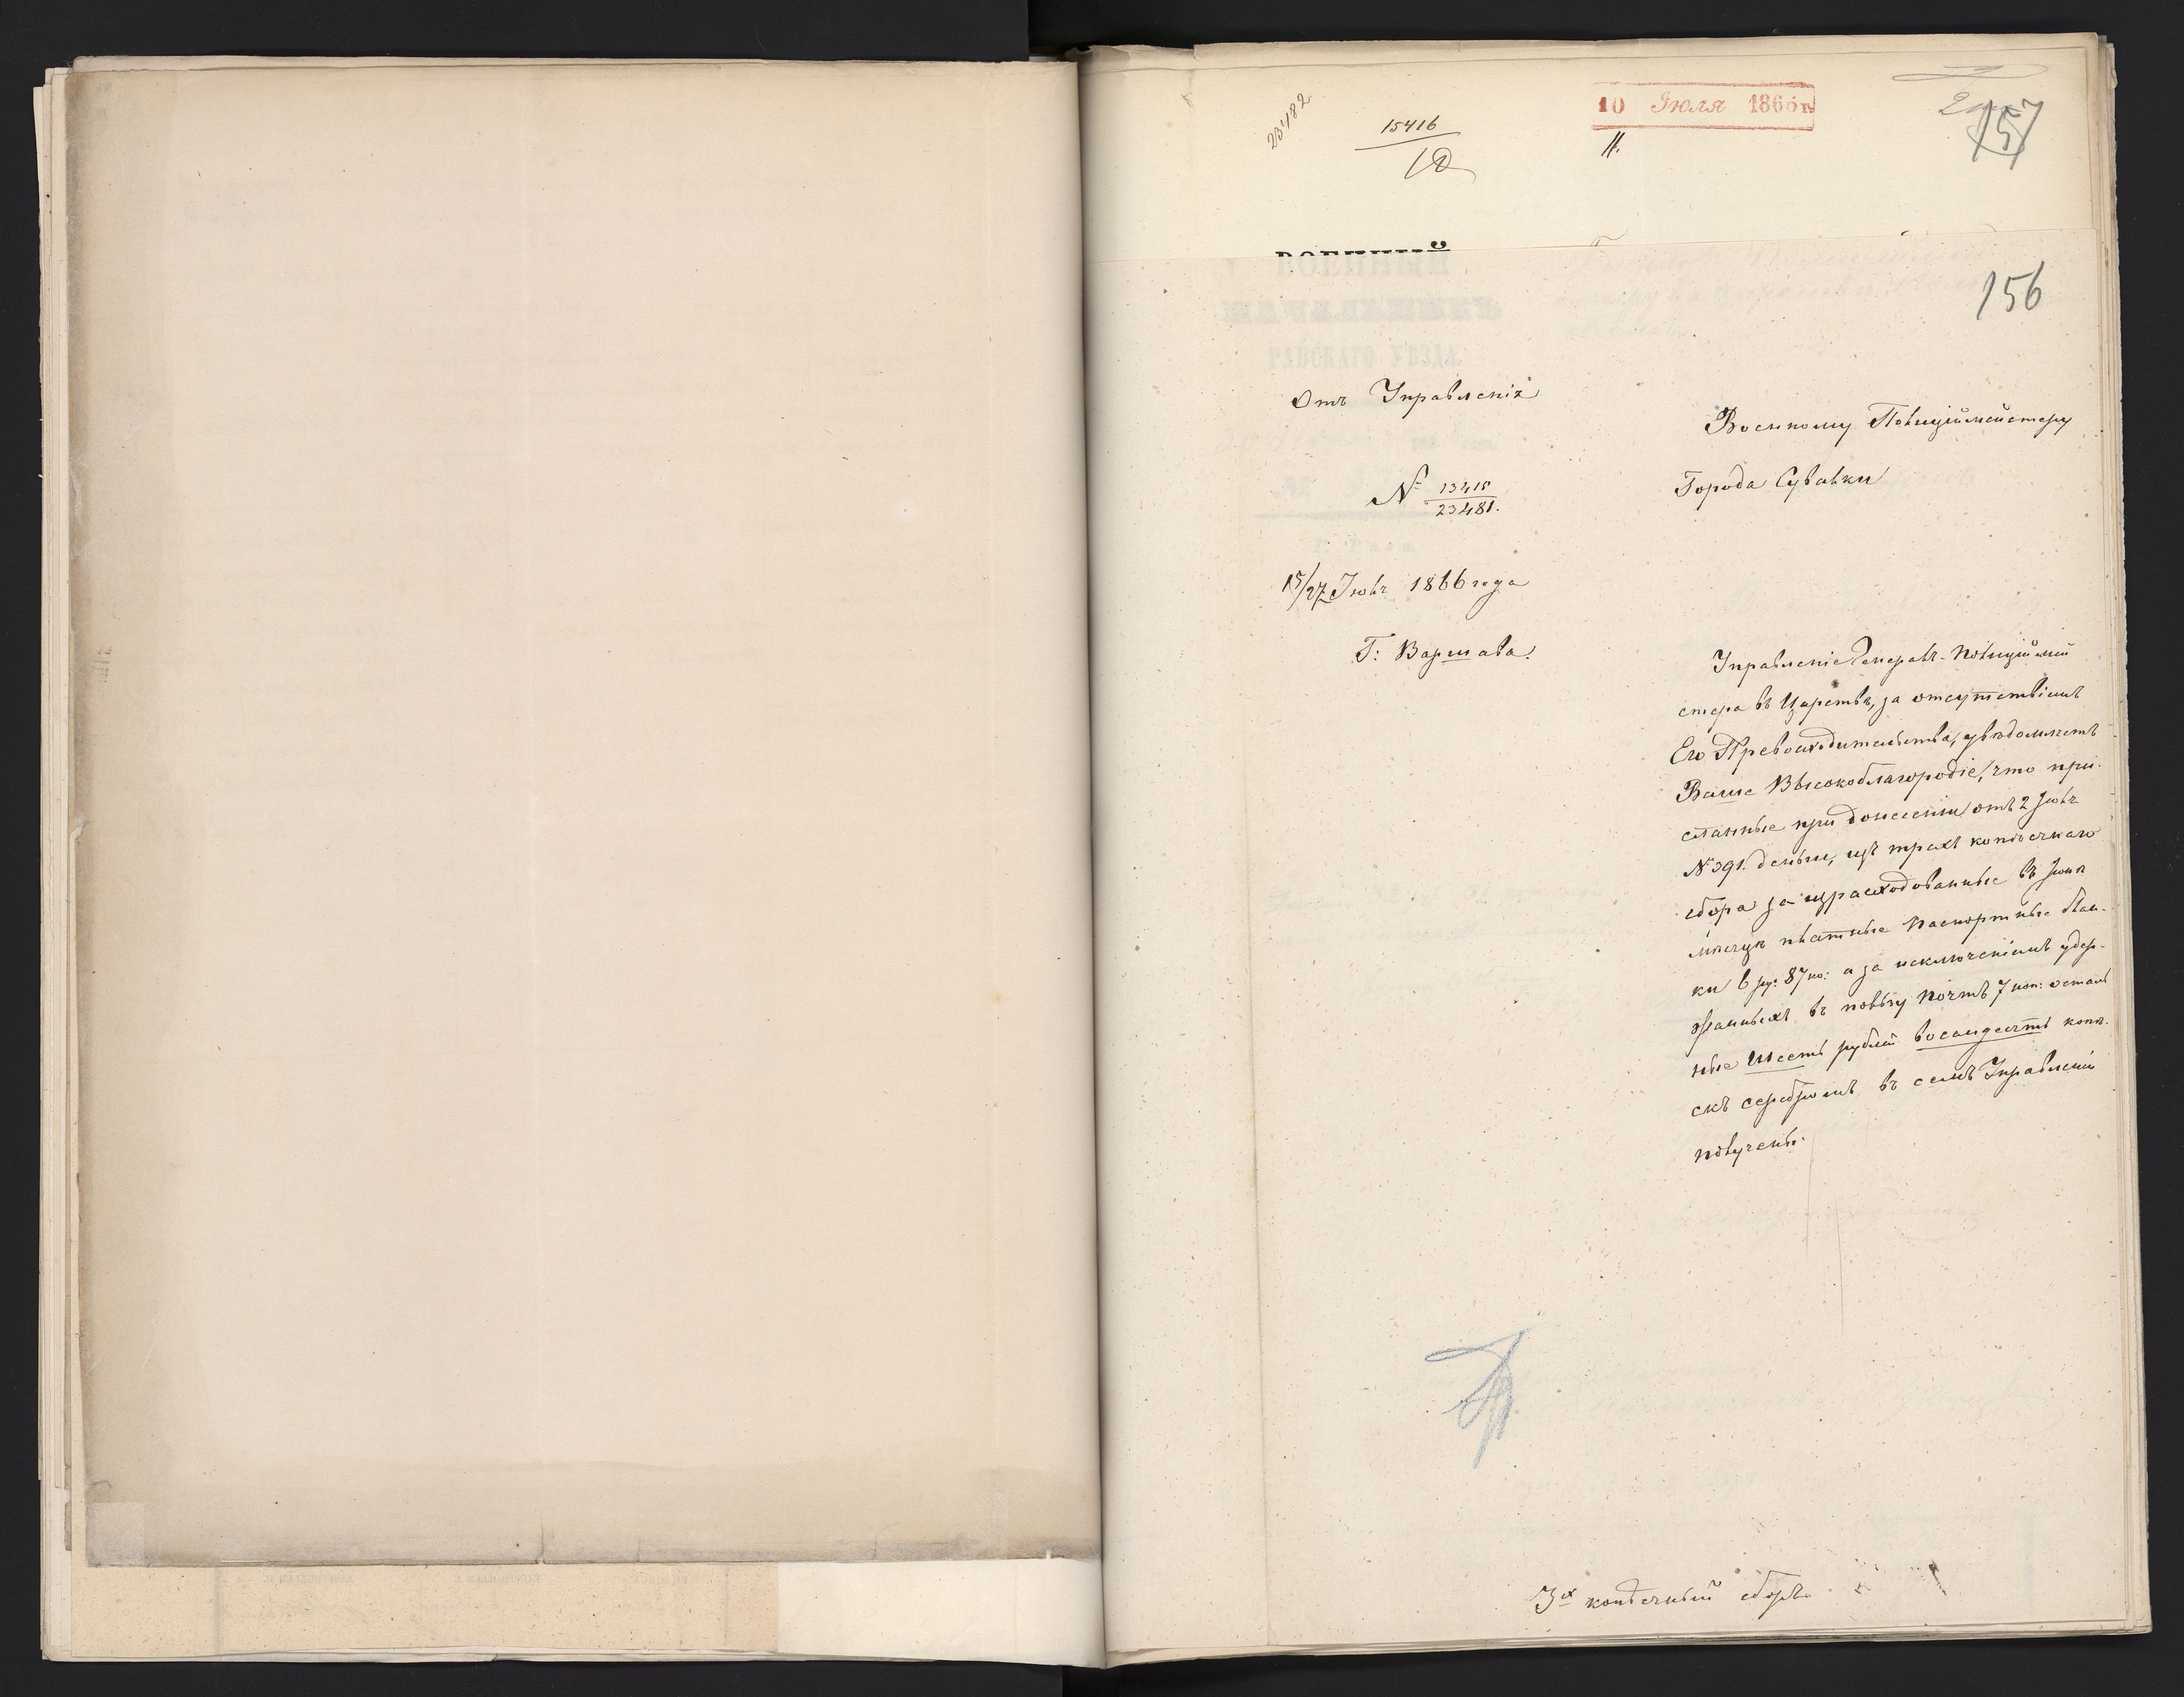 23482
15416
10 Июля 1866 г.
157
ВОЕННЫЙ
156
Отъ Управленія
Военному Полицiймейстеру
Города Сувалки
№ 13415
23481.
15/27 Іюля 1866 года
Г: Варшава.
Управленіе Генералъ-Полиціймей
стера въ Царствѣ, за отсутствіемъ
Его Превосходительства, увѣдомляетъ
Ваше Высокоблагородіе, что при-
сланные при донесеніи отъ 2 Іюля
№ 391. деньги, изъ трехъ копѣечнаго
сбора за израсходованные въ Іюнѣ
мѣсяцѣ платные паспортные блан-
ки 6 ру: 87 ко: а за исключеніемъ удер-
жанныхъ въ пользу почтъ 7 коп: осталь
ные Шесть рублей восемдесятъ копѣ-
екъ серебромъ въ семъ Управленіи
получены.
3х копѣечный сборъ